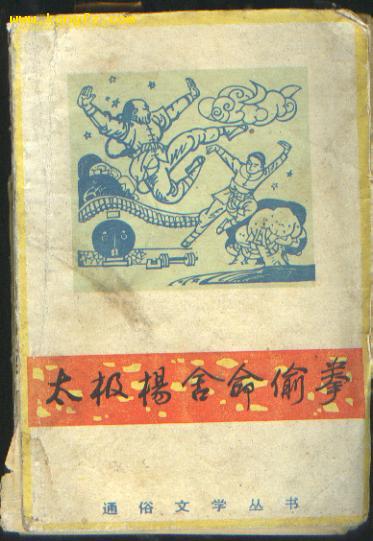 www.kongfz.com
太极楊舍命偷拳
通俗文学丛书